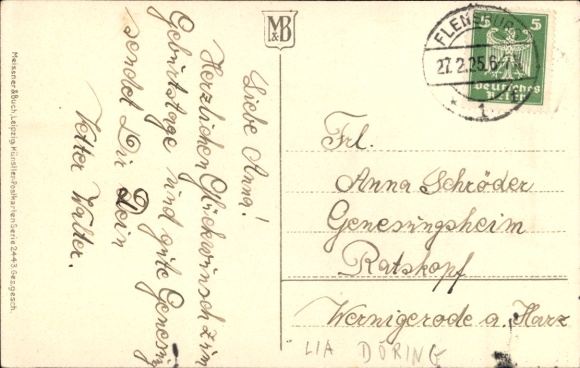 M&B
Liebe Anna!
Herzlichen Glückwunsch zum
Geburtstage und gute Genesung
sendet Dir Dein
Vetter Walter.
Meissner & Buch, Leipzig, Künstler-Postkarten Serie 2443. Ges. gesch.
FLENSBURG
27.2.25.6-7N
* 1
5 5
Deutsches
Reich
Frl.
Anna Schröder
Genesungsheim
Ratskopf
Wernigerode a. Harz
LIA DÖRING